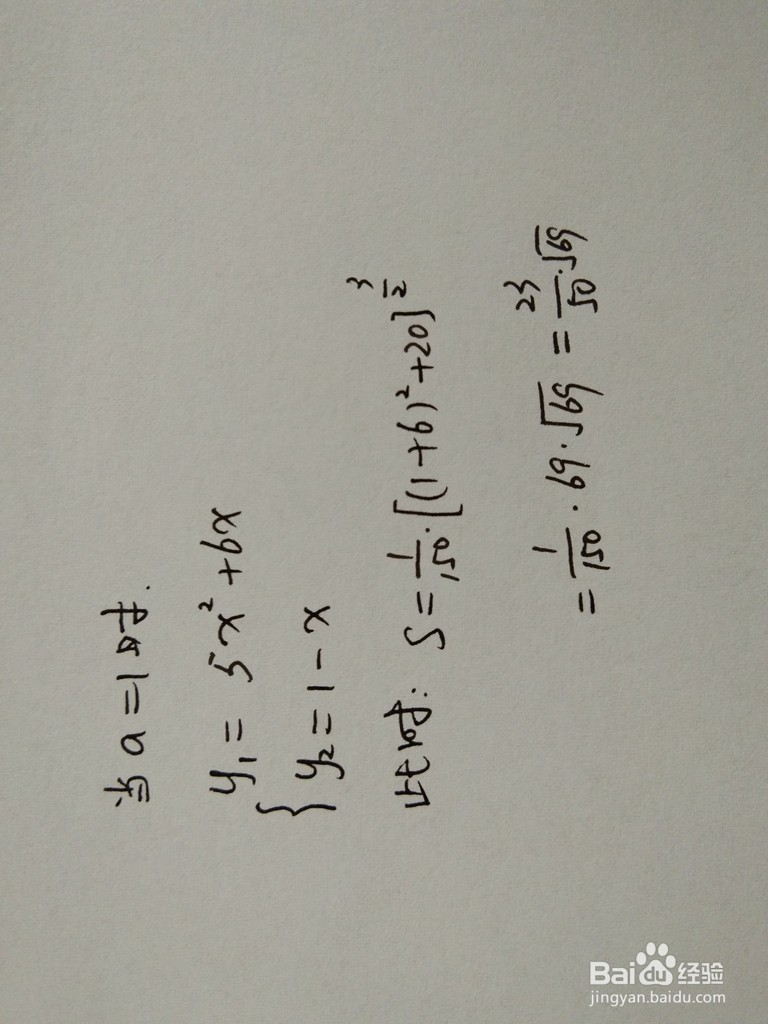 当a=1时.
y₁=5x²+6x
{y₂=1-x
此时: S=1/150·[(1+6)²+20]^(3/2)
=1/150·69·√69=23/50·√69
Baidu经验
jingyan.baidu.com